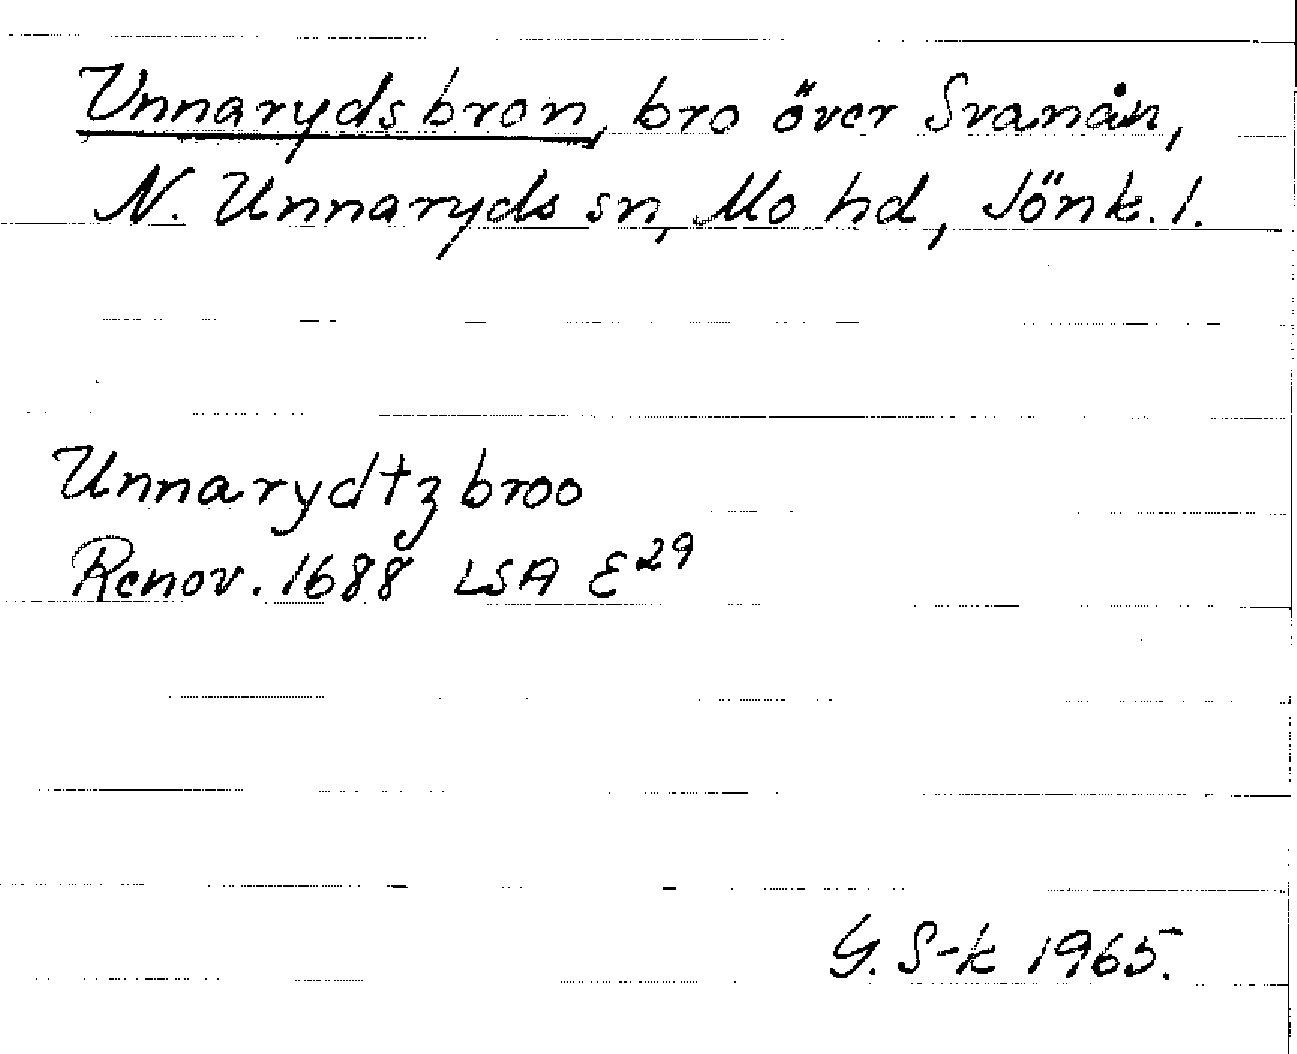 Unnarydsbron, bro över Svanån,
N. Unnaryds sn, Mo hd, Jönk. l.
Unnarydtz broo
Renov. 1688 LSA E29
G. S-k 1965.